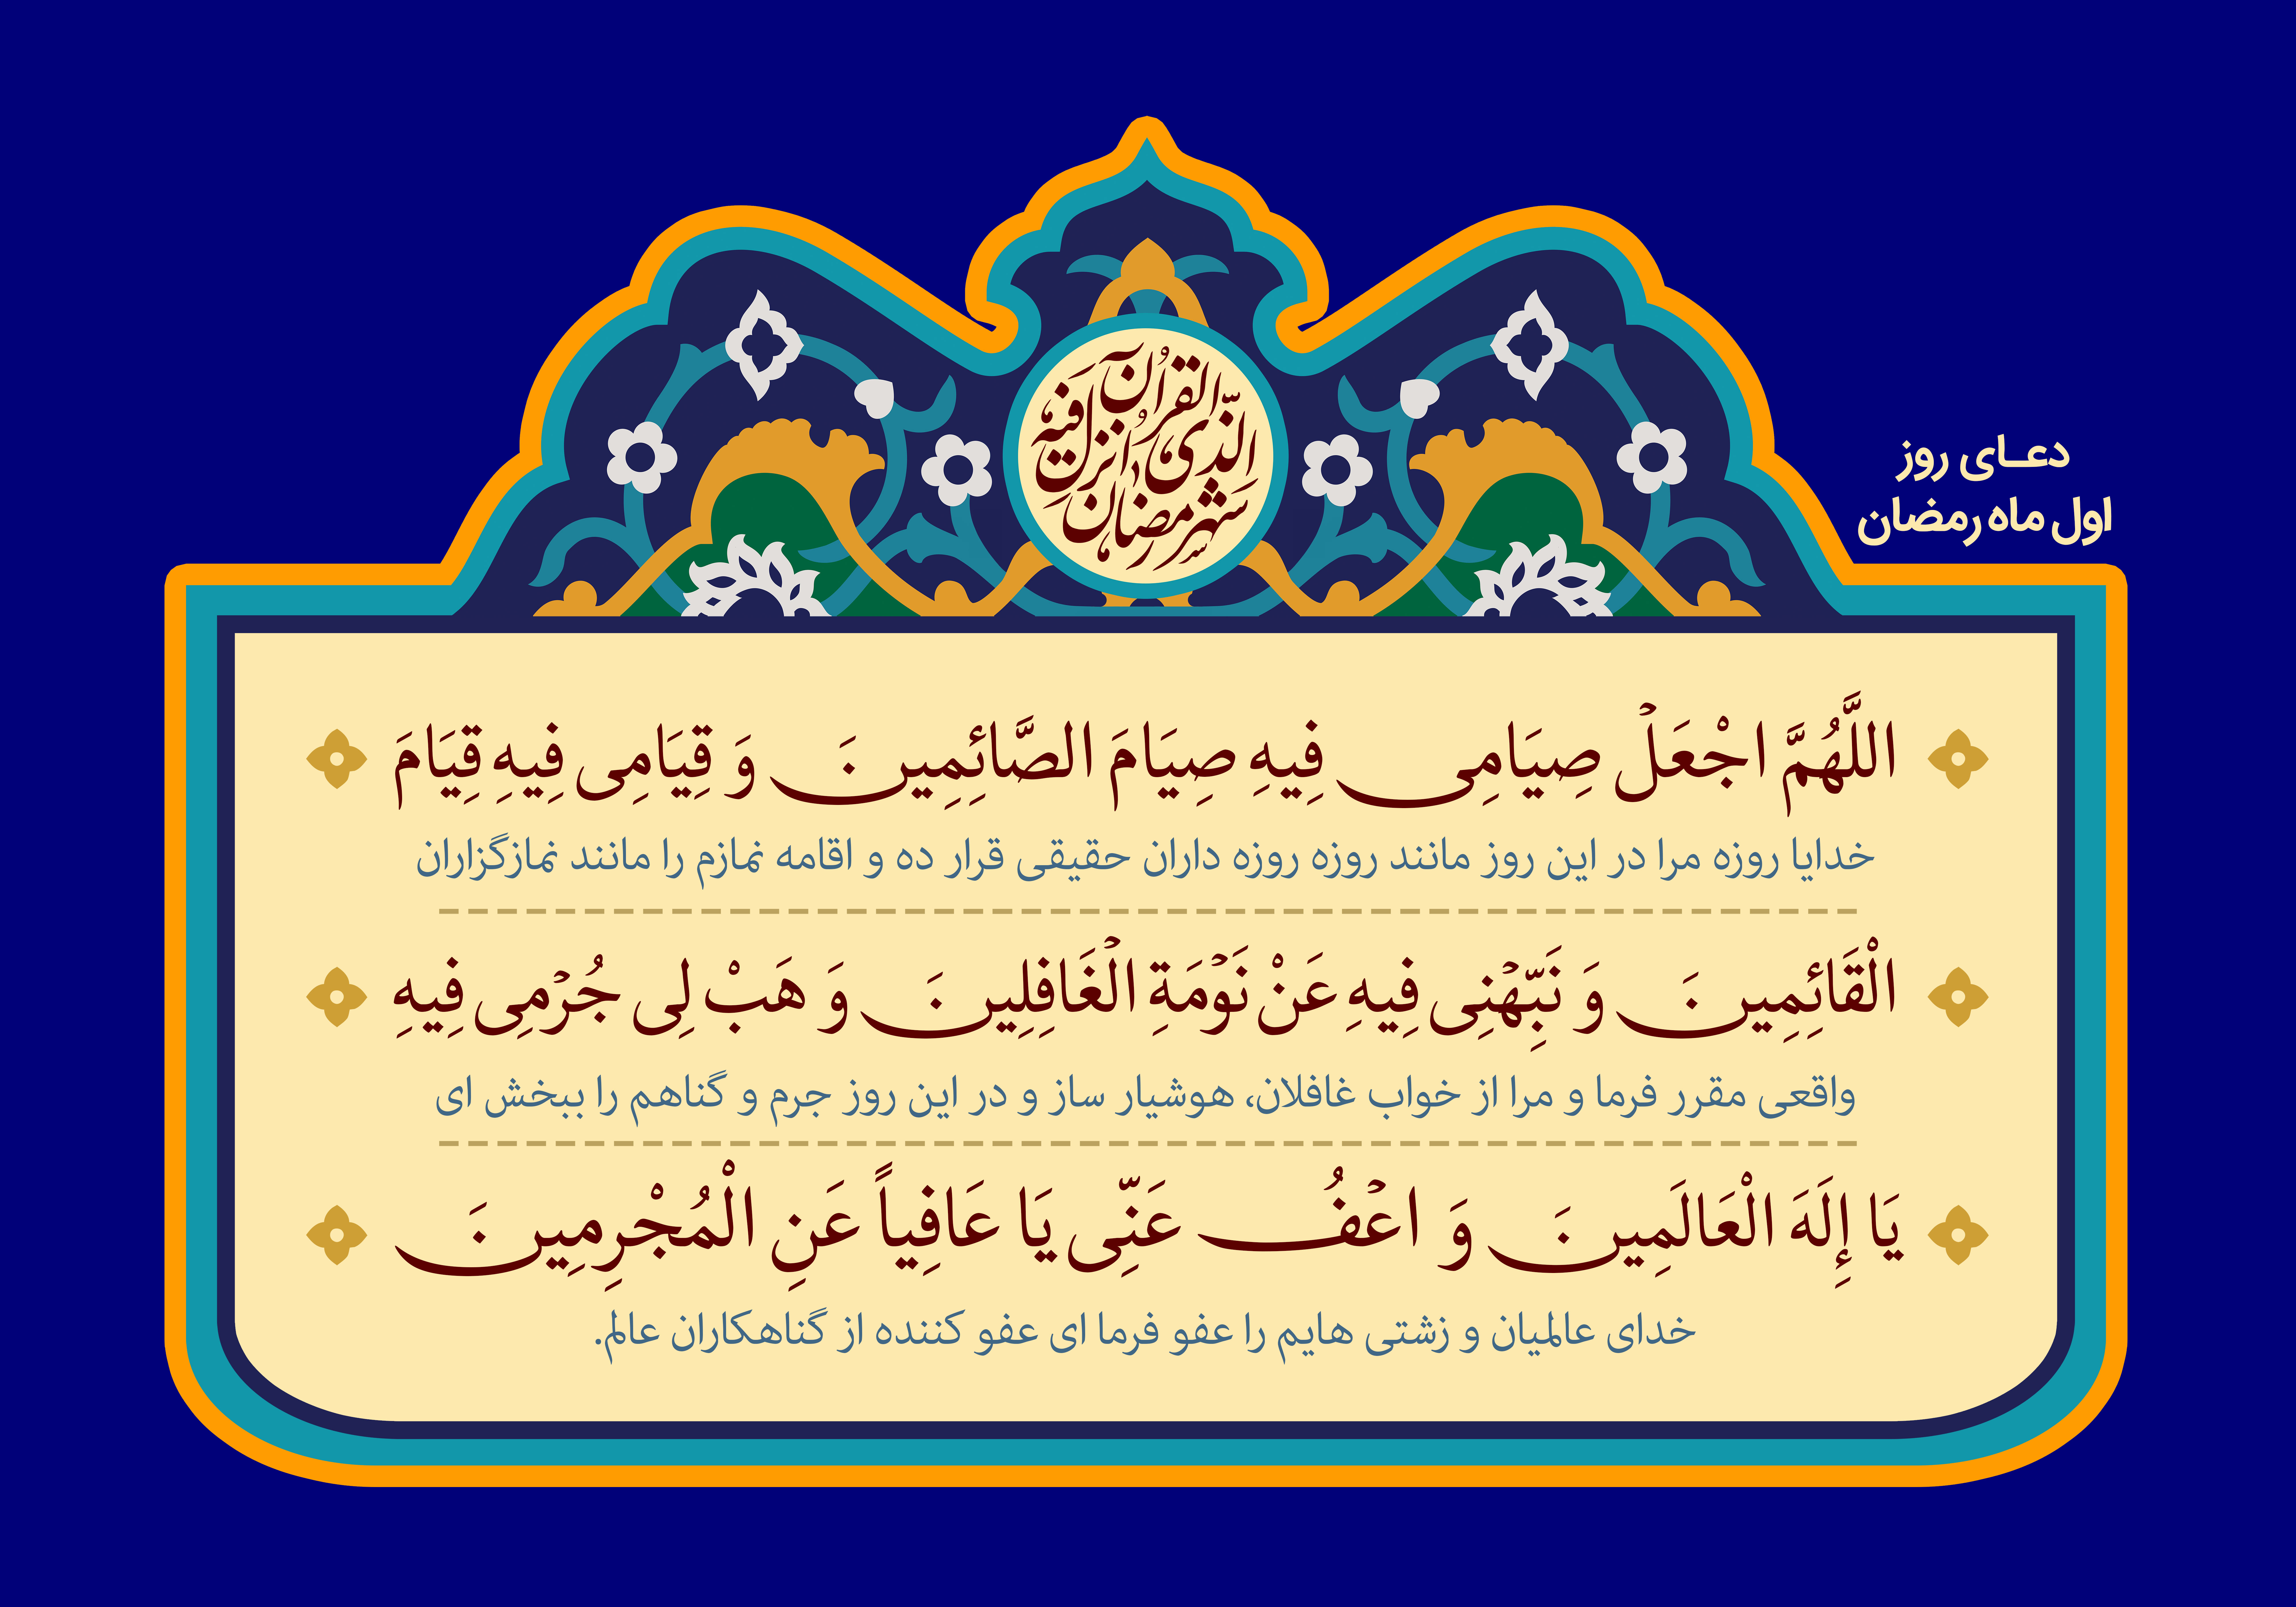 شَهْرُ رَمَضَانَ
الَّذِی اُنْزِلَ فِیهِ
الْقُرْآنُ
دعــای روز
اول ماه رمضان
اللَّهُمَّ اجْعَلْ صِیَامِی فِیهِ صِیَامَ الصَّائِمِینَ وَ قِیَامِی فِیهِ قِیَامَ
خدایا روزه مرا در این روز مانند روزه روزه داران حقیقی قرار ده و اقامه نمازم را مانند نمازگزاران
الْقَائِمِینَ وَ نَبِّهْنِی فِیهِ عَنْ نَوْمَةِ الْغَافِلِینَ وَ هَبْ لِی جُرْمِی فِیهِ
واقعی مقرر فرما و مرا از خواب غافلان، هوشیار ساز و در این روز جرم و گناهم را ببخش ای
یَا إِلَهَ الْعَالَمِینَ وَ اعْفُ عَنِّی یَا عَافِیاً عَنِ الْمُجْرِمِینَ
خدای عالمیان و زشتی هایم را عفو فرما ای عفو کننده از گناهکاران عالم.